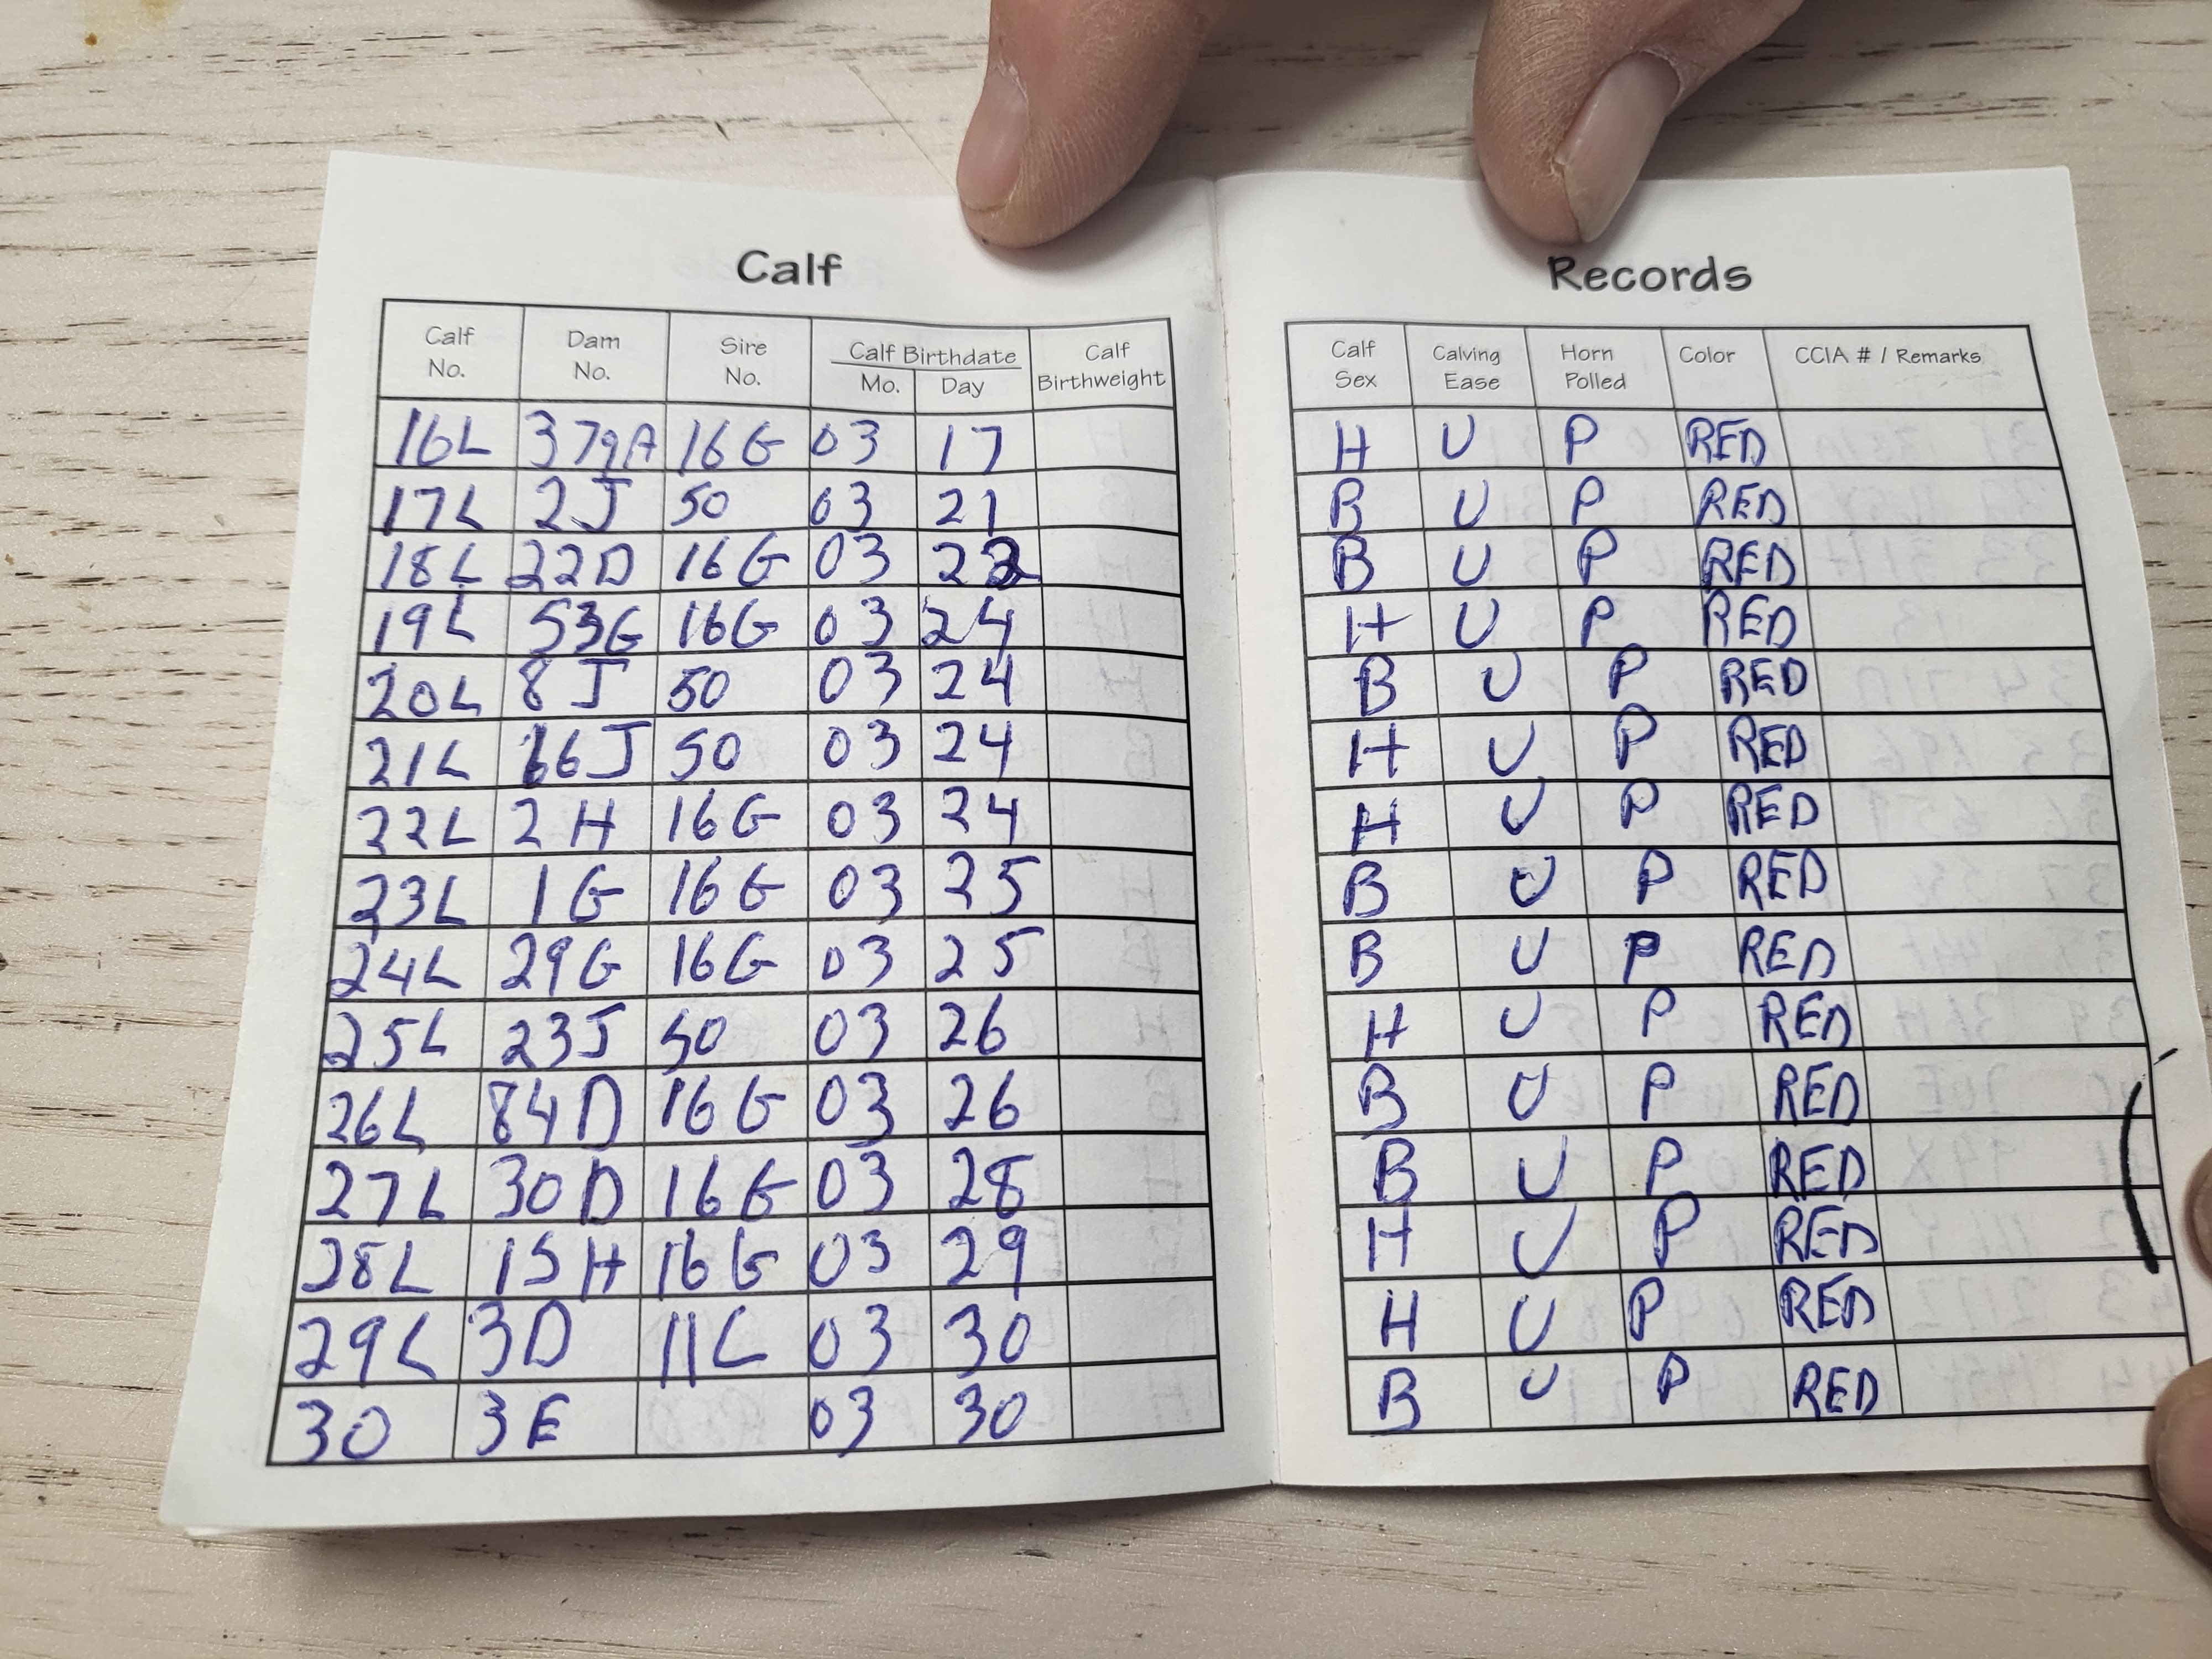 Calf Records
Calf No. Dam No. Sire No. Calf Birthdate Mo. Day Calf Birthweight Calf Sex Calving Ease Horn Polled Color CCIA # / Remarks
16L 379A 16G 03 17 H U P RED
17L 2J 50 03 21 B U P RED
18L 22D 16G 03 22 B U P RED
19L 53G 16G 03 24 H U P RED
20L 8J 50 03 24 B U P RED
21L 16J 50 03 24 H U P RED
22L 2H 16G 03 24 H U P RED
23L 1G 16G 03 25 B U P RED
24L 29G 16G 03 25 B U P RED
25L 23J 50 03 26 H U P RED
26L 84D 16G 03 26 B U P RED
27L 30D 16G 03 28 B U P RED
28L 15H 16G 03 29 H U P RED
29L 3D 11L 03 30 H U P RED
30 3E 03 30 B U P RED